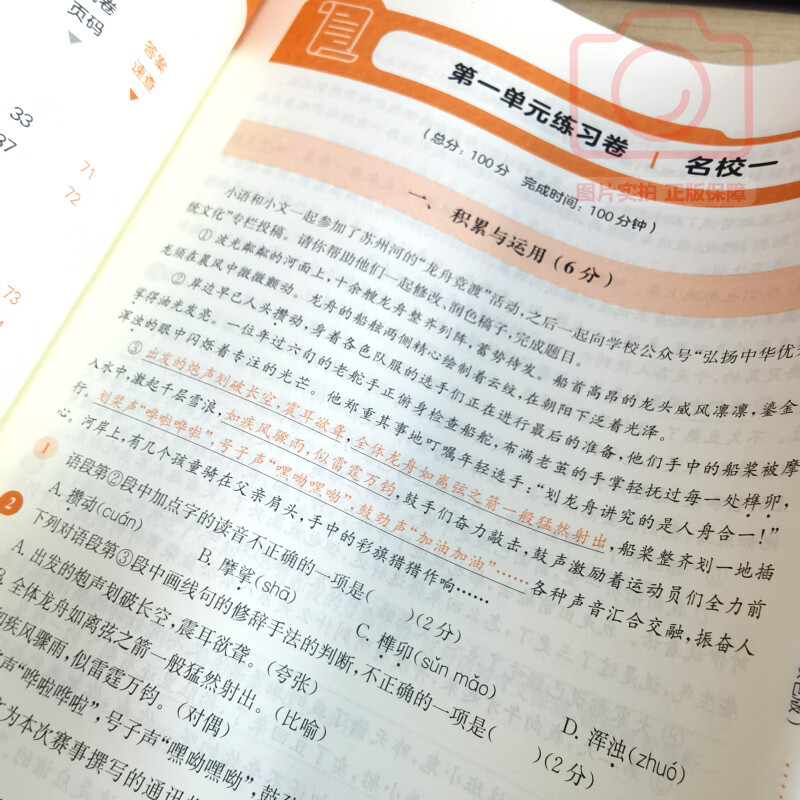 页码
答案
速查
33
37
71
72
73
图片实拍 正版保障
第一单元练习卷 | 名校一
(总分：100分 完成时间：100分钟)
一、积累与运用(6分)
小语和小文一起参加了苏州河的“龙舟竞渡”活动，之后一起向学校公众号“弘扬中华优
统文化”专栏投稿。请你帮助他们一起修改、润色稿子，完成题目。
①波光粼粼的河面上，十余艘龙舟整齐列阵，蓄势待发。船首高昂的龙头威风凛凛，鎏金
龙须在晨风中微微颤动。龙舟的船舷两侧精心绘制着云纹，在朝阳下泛着光泽。
②岸边早已人头攒动，身着各色队服的选手们正在进行最后的准备，他们手中的船桨被摩
挲得油光发亮。一位年过六旬的老舵手正俯身检查船舵，布满老茧的手掌轻抚过每一处榫卯，
浑浊的眼中闪烁着专注的光芒。他郑重其事地叮嘱年轻选手：“划龙舟讲究的是人舟合一！”
③出发的炮声划破长空，震耳欲聋，全体龙舟如离弦之箭一般猛然射出，船桨整齐划一地插
入水中，激起千层雪浪，如疾风骤雨，似雷霆万钧，鼓手们奋力敲击，鼓声激励着运动员们全力前
行。划桨声“哗啦哗啦”，号子声“嘿呦嘿呦”，鼓劲声“加油加油”……各种声音汇合交融，振奋人
心。河岸上，有几个孩童骑在父亲肩头，手中的彩旗猎猎作响……
1 语段第②段中加点字的读音不正确的一项是( )(2分)
A. 攒动(cuán) B. 摩挲(shā) C. 榫卯(sǔn mǎo) D. 浑浊(zhuó)
2 下列对语段第③段中画线句的修辞手法的判断，不正确的一项是( )(2分)
A. 出发的炮声划破长空，震耳欲聋。(夸张)
B. 全体龙舟如离弦之箭一般猛然射出。(比喻)
如疾风骤雨，似雷霆万钧。(对偶)
声“哗啦哗啦”，号子声“嘿呦嘿呦”，鼓
为本次赛事撰写的通讯